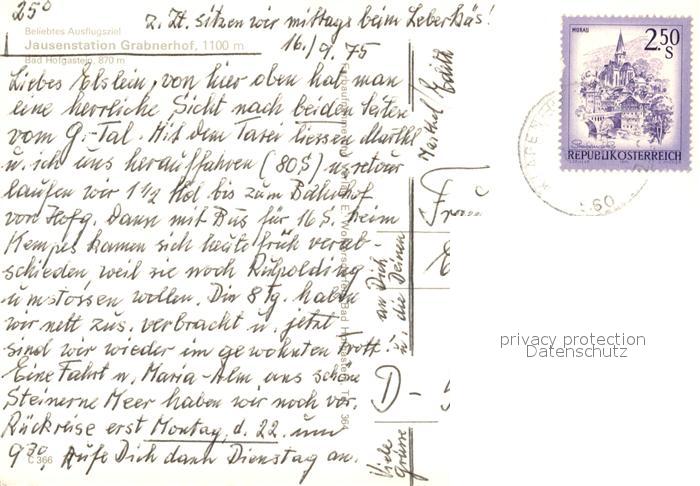 25°
z. Zt. sitzen wir mittags beim Leberkäs!
Beliebtes Ausflugsziel
Jausenstation Grabnerhof, 1100 m
Bad Hofgastein, 870 m
16./9.75
Liebes Elslein, von hier oben hat man
eine herrliche Sicht nach beiden Seiten
vom G.-Tal. Mit dem Taxi liessen Marthl
u. ich uns herauffahren (80 S) u. retour
laufen wir 1 1/2 Std bis zum Bahnhof
von Hofg. Dann mit Bus für 16 S. heim
Kempes kamen sich heute früh verab-
schieden weil sie noch Ruhpolding
umstossen wollen. Die 8 Tg. haben
wir nett zus. verbracht u. jetzt
sind wir wieder im gewohnten Trott!
Eine Fahrt n. Maria-Alm ans schöne
Steinerne Meer haben wir noch vor.
Rückreise erst Montag, d. 22. um
9 30. Rufe Dich dann Dienstag an.
C 366
Viele Grüsse
an Dich
u. die Deinen
Edith
D-
MURAU
2.50 S
REPUBLIK ÖSTERREICH
privacy protection
Datenschutz